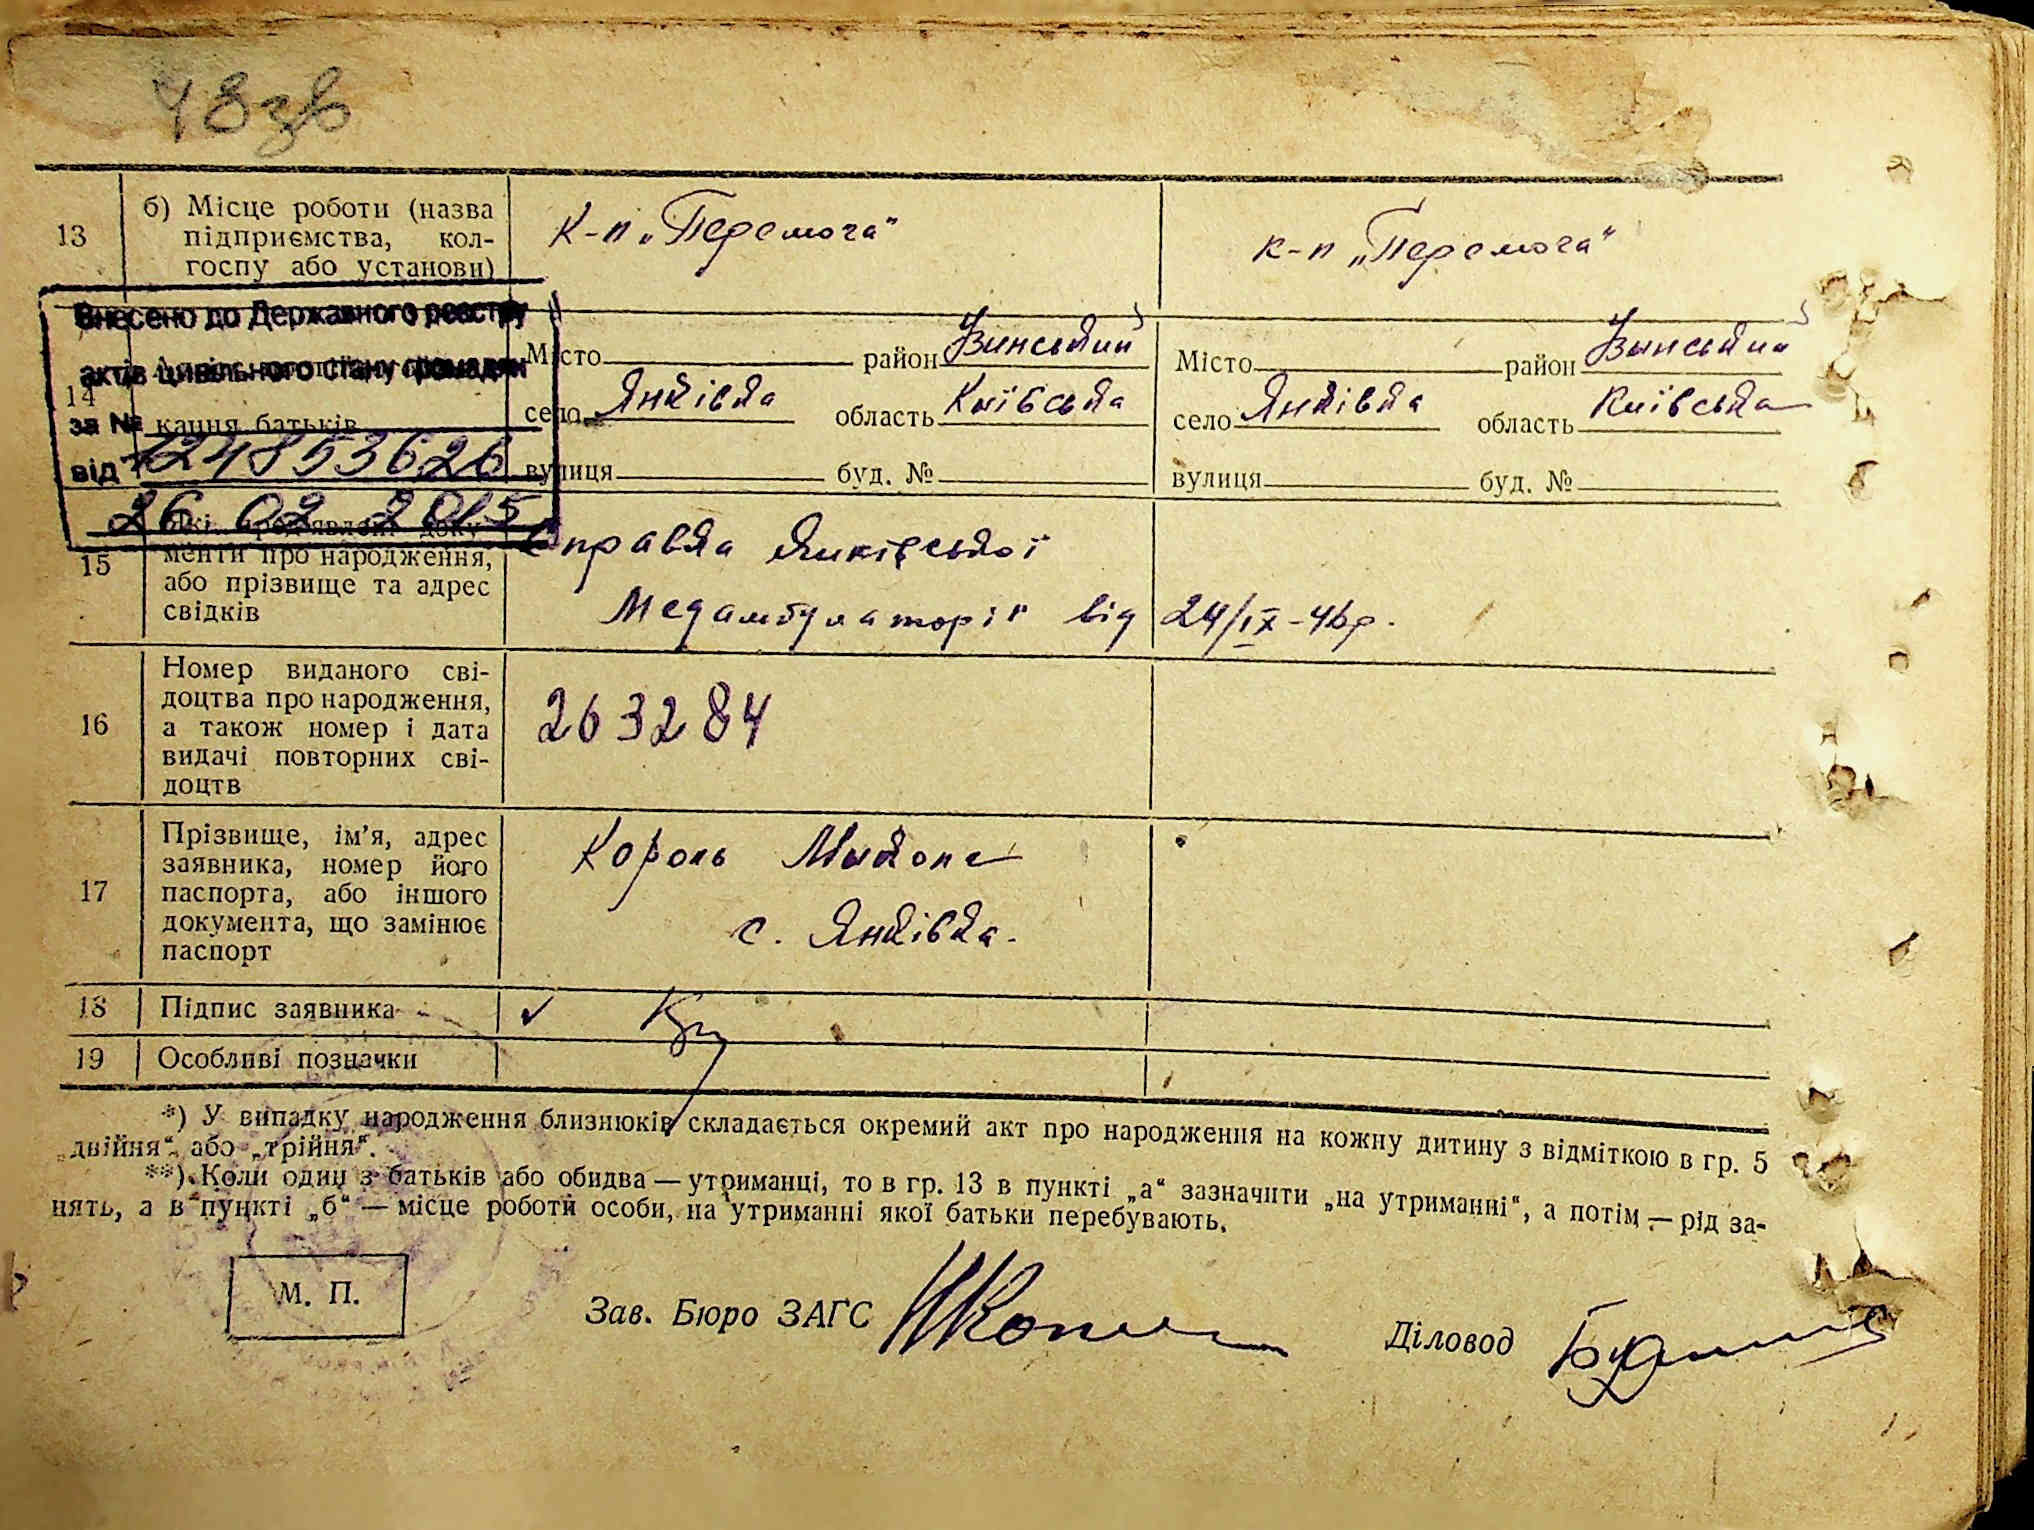 48зв
13
б) Місце роботи (назва
підприємства, кол-
госпу або установи)
к-п „Перемога“
к-п „Перемога“
Внесено до Державного реєстру
актів цивільного стану громадян
за №
від 124853626
26 02 2015
14
кання батьків
Місто район
село Янківка область Київська
вулиця буд. №
Місто район
село Янківка область Київська
вулиця буд. №
15
Які пред'явлені доку-
менти про народження,
або прізвище та адрес
свідків
Справка Янківської
Медамбулаторії від 24/IX-46р.
16
Номер виданого сві-
доцтва про народження,
а також номер і дата
видачі повторних сві-
доцтв
263284
17
Прізвище, ім’я, адрес
заявника, номер його
паспорта, або іншого
документа, що замінює
паспорт
Король
с. Янківка.
18 Підпис заявника
19 Особливі позначки
*) У випадку народження близнюків складається окремий акт про народження на кожну дитину з відміткою в гр. 5
„двійня“ або „трійня“.
**) Коли один з батьків або обидва — утриманці, то в гр. 13 в пункті „а“ зазначити „на утриманні“, а потім — рід за-
нять, а в пункті „б“ — місце роботи особи, на утриманні якої батьки перебувають.
М. П.
Зав. Бюро ЗАГС
Діловод